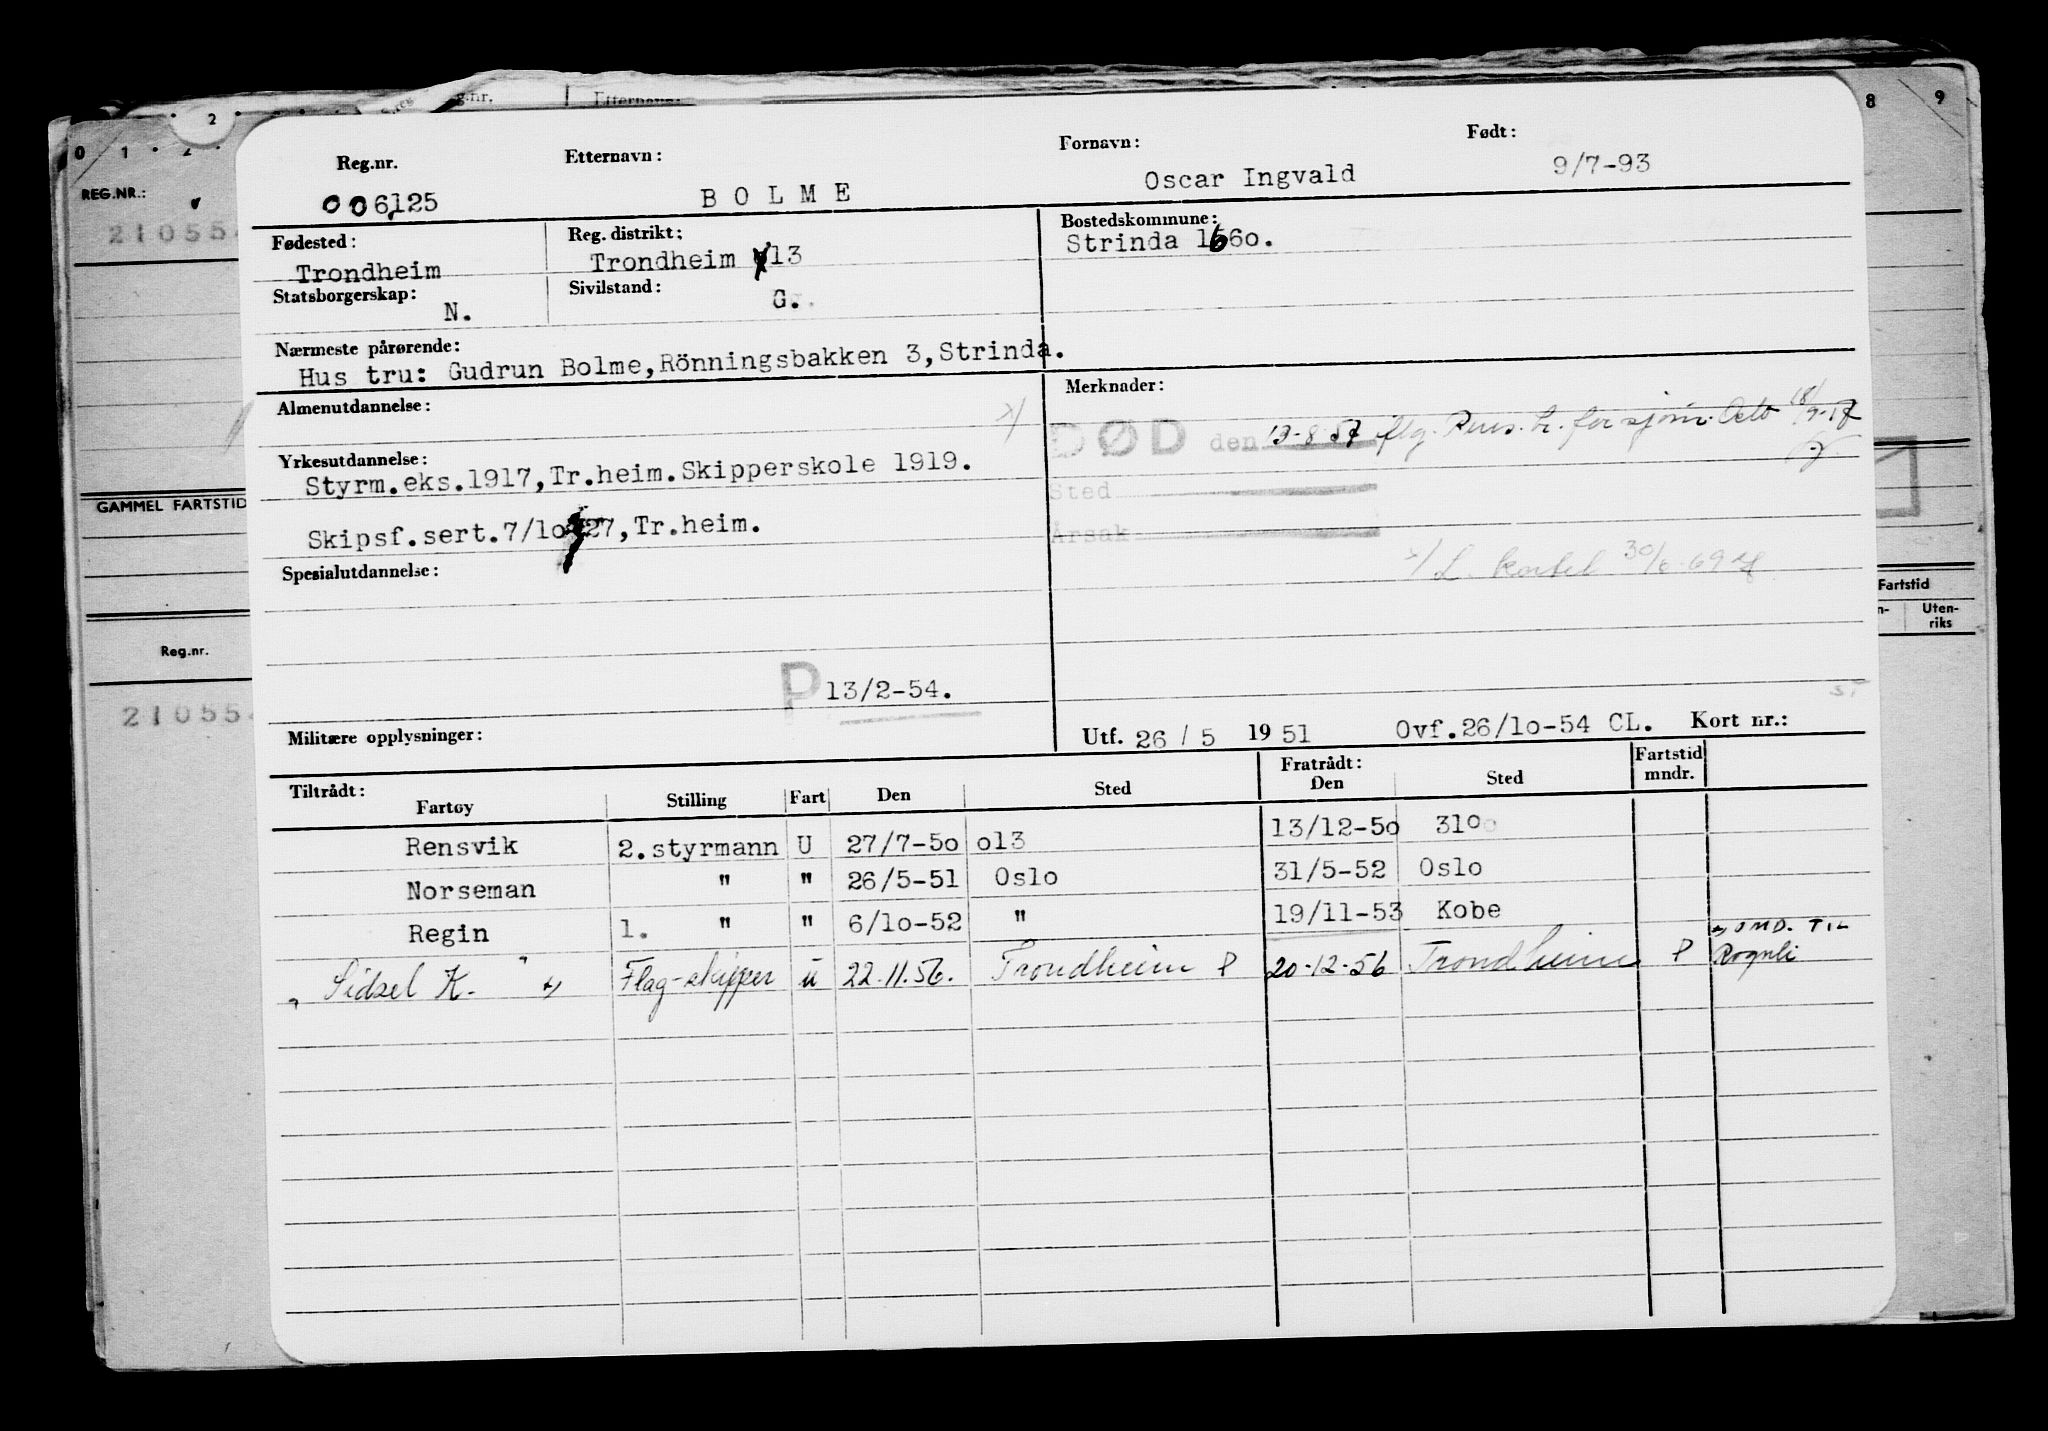 g.nr. Etternavn:
2
0 1 2
8 9
REG.NR.:
21055
GAMMEL FARTSTID
Fartstid
n- Uten-
riks
Reg.nr.
21055
Reg.nr. Etternavn: Fornavn: Født:
006125 BOLME Oscar Ingvald 9/7-93
Fødested: Reg. distrikt: Bostedskommune:
Trondheim Trondheim 13 Strinda 1660.
Statsborgerskap: Sivilstand:
N. G.
Nærmeste pårørende:
Hus tru: Gudrun Bolme, Rönningsbakken 3, Strinda.
Almenutdannelse: x) Merknader:
DØD den 13-8-57 iflg. for sjøm. Oslo 18/9-57
Yrkesutdannelse:
Styrm.eks.1917, Tr.heim. Skipperskole 1919.
Sted
Skipsf.sert.7/10-27, Tr.heim.
Årsak
x/ L. kartel 30/6-69
Spesialutdannelse:
P 13/2-54.
Militære opplysninger: Utf. 26/5 1951 Ovf.26/10-54 CL. Kort nr.:
Tiltrådt: Fratrådt: Fartstid
Fartøy Stilling Fart Den Sted Den Sted mndr.
Rensvik 2.styrmann U 27/7-50 o13 13/12-50 310
Norseman " " 26/5-51 Oslo 31/5-52 Oslo
Regin 1. " " 6/10-52 " 19/11-53 Kobe
x) OMD. TIL
"Sidsel K." x) Flag-skipper u 22.11.56. Trondheim P 20-12-56 Trondheim P Rognli